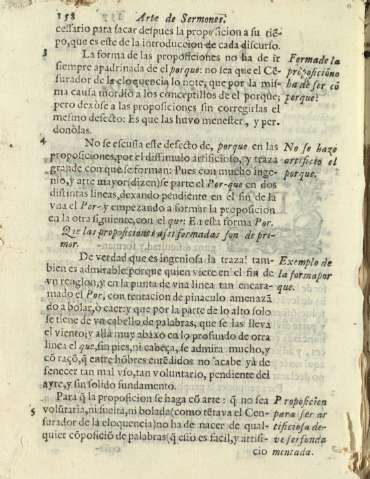 158 Arte de Sermones.
cessario para sacar despues la proposicion a su tiē-
po, que es este de la introduccion de cada discurso.
3 La forma de las proposiciones no ha de ir
siempre apadrinada de el porque: no sea que el Cē-
surador de la eloquencia lo note, que por la mis-
ma causa mordiò a los conceptillos de el porque,
pero dexòse a las proposiciones sin corregirlas el
mesmo defecto: Es que las huvo menester, y per-
donòlas.
Forma de la
proposiciōno
ha de ser cō
porque:
4 No se escusia este defecto de, porque en las
proposiciones, por el dissimulo artificioso, y traza
grande con que se forman: Pues con mucho inge-
nio, y arte mayor (dizen) se parte el Por-que en dos
distintas lineas, dexando pendiente en el fin de la
vna el Por- y empezando a formar la proposicion
en la otra siguiente, con el que: En esta forma Por.
Que las proposiciones assi formadas son de pri-
mor.
No se haze
artificio el
porque.
De verdad que es ingeniosa la traza! tam-
bien es admirable: porque quien viere en el fin de
vn renglon, y en la punta de vna linea tan encara-
mado el Por, con tentacion de pinaculo amenazā
do a bolar, o caer: y que por la parte de lo alto solo
se tiene de vn cabello de palabras, que se las lleva
el viento; y allà muy abaxo en lo profundo de otra
linea el que, sin pies, ni cabeça, se admira mucho, y
cō raçō, q̄ entre hōbres entēdidos no acabe yà de
fenecer tan mal vso, tan voluntario, pendiente del
ayre, y sin solido fundamento.
Exemplo de
la forma por
que.
5 Para q̄ la proposicion se haga cō arte: q̄ no sea
volũtaria, ni suelta, ni bolada (como tētava el Cen-
surador de la eloquencia) no ha de nacer de qual-
quier cōposiciō de palabras (q̄ esso es facil, y artifi-
cio
Proposicion
para ser ar
tificiosa de-
ve ser funda
mentada.